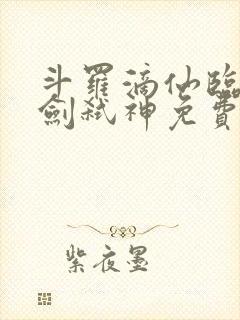 斗羅滴仙臨
劍弒神免費
紫夜墨